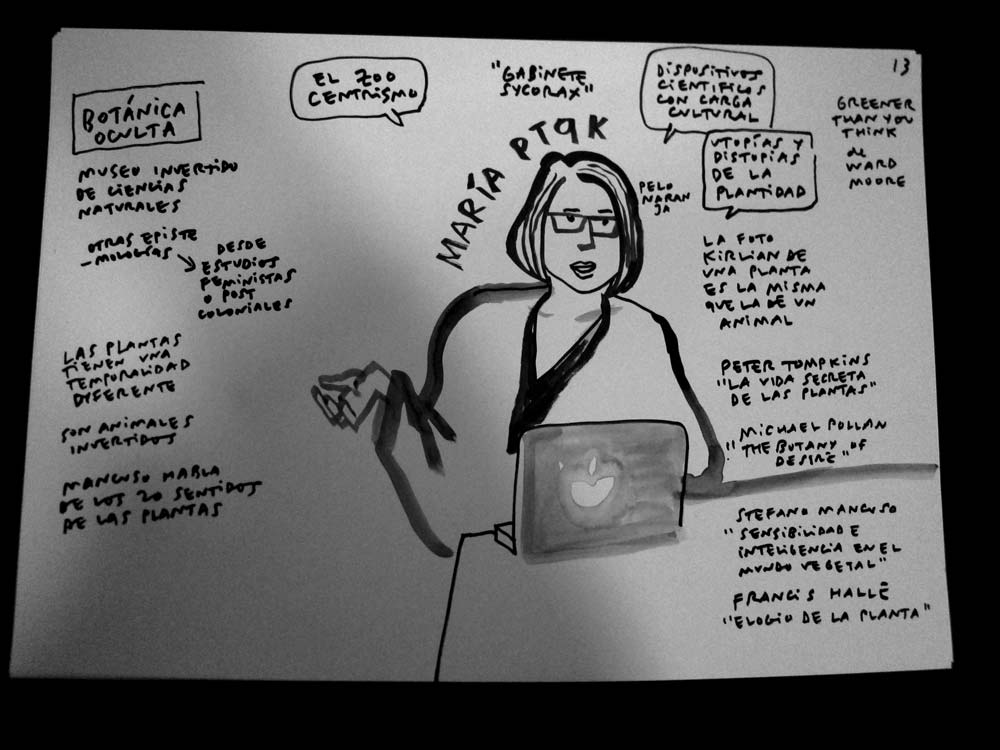 13
BOTÁNICA
OCULTA
MUSEO INVERTIDO
DE CIENCIAS
NATURALES
OTRAS EPISTE
-MOLOGÍAS
DESDE
ESTUDIOS
FEMINISTAS
O POST
COLONIALES
LAS PLANTAS
TIENEN UNA
TEMPORALIDAD
DIFERENTE
SON ANIMALES
INVERTIDOS
MANCUSO HABLA
DE LOS 20 SENTIDOS
DE LAS PLANTAS
EL ZOO
CENTRISMO
"GABINETE
SYCORAX"
MARÍA PTQK
PELO
NARAN
JA
DISPOSITIVOS
CIENTÍFICOS
CON CARGA
CULTURAL
UTOPÍAS Y
DISTOPÍAS
DE LA
PLANTIDAD
GREENER
THAN YOU
THINK
de
WARD
MOORE
LA FOTO
KIRLIAN DE
UNA PLANTA
ES LA MISMA
QUE LA DE UN
ANIMAL
PETER TOMPKINS
"LA VIDA SECRETA
DE LAS PLANTAS"
MICHAEL POLLAN
"THE BOTANY OF
DESIRE"
STEFANO MANCUSO
"SENSIBILIDAD E
INTELIGENCIA EN EL
MUNDO VEGETAL"
FRANCIS HALLÉ
"ELOGIO DE LA PLANTA"